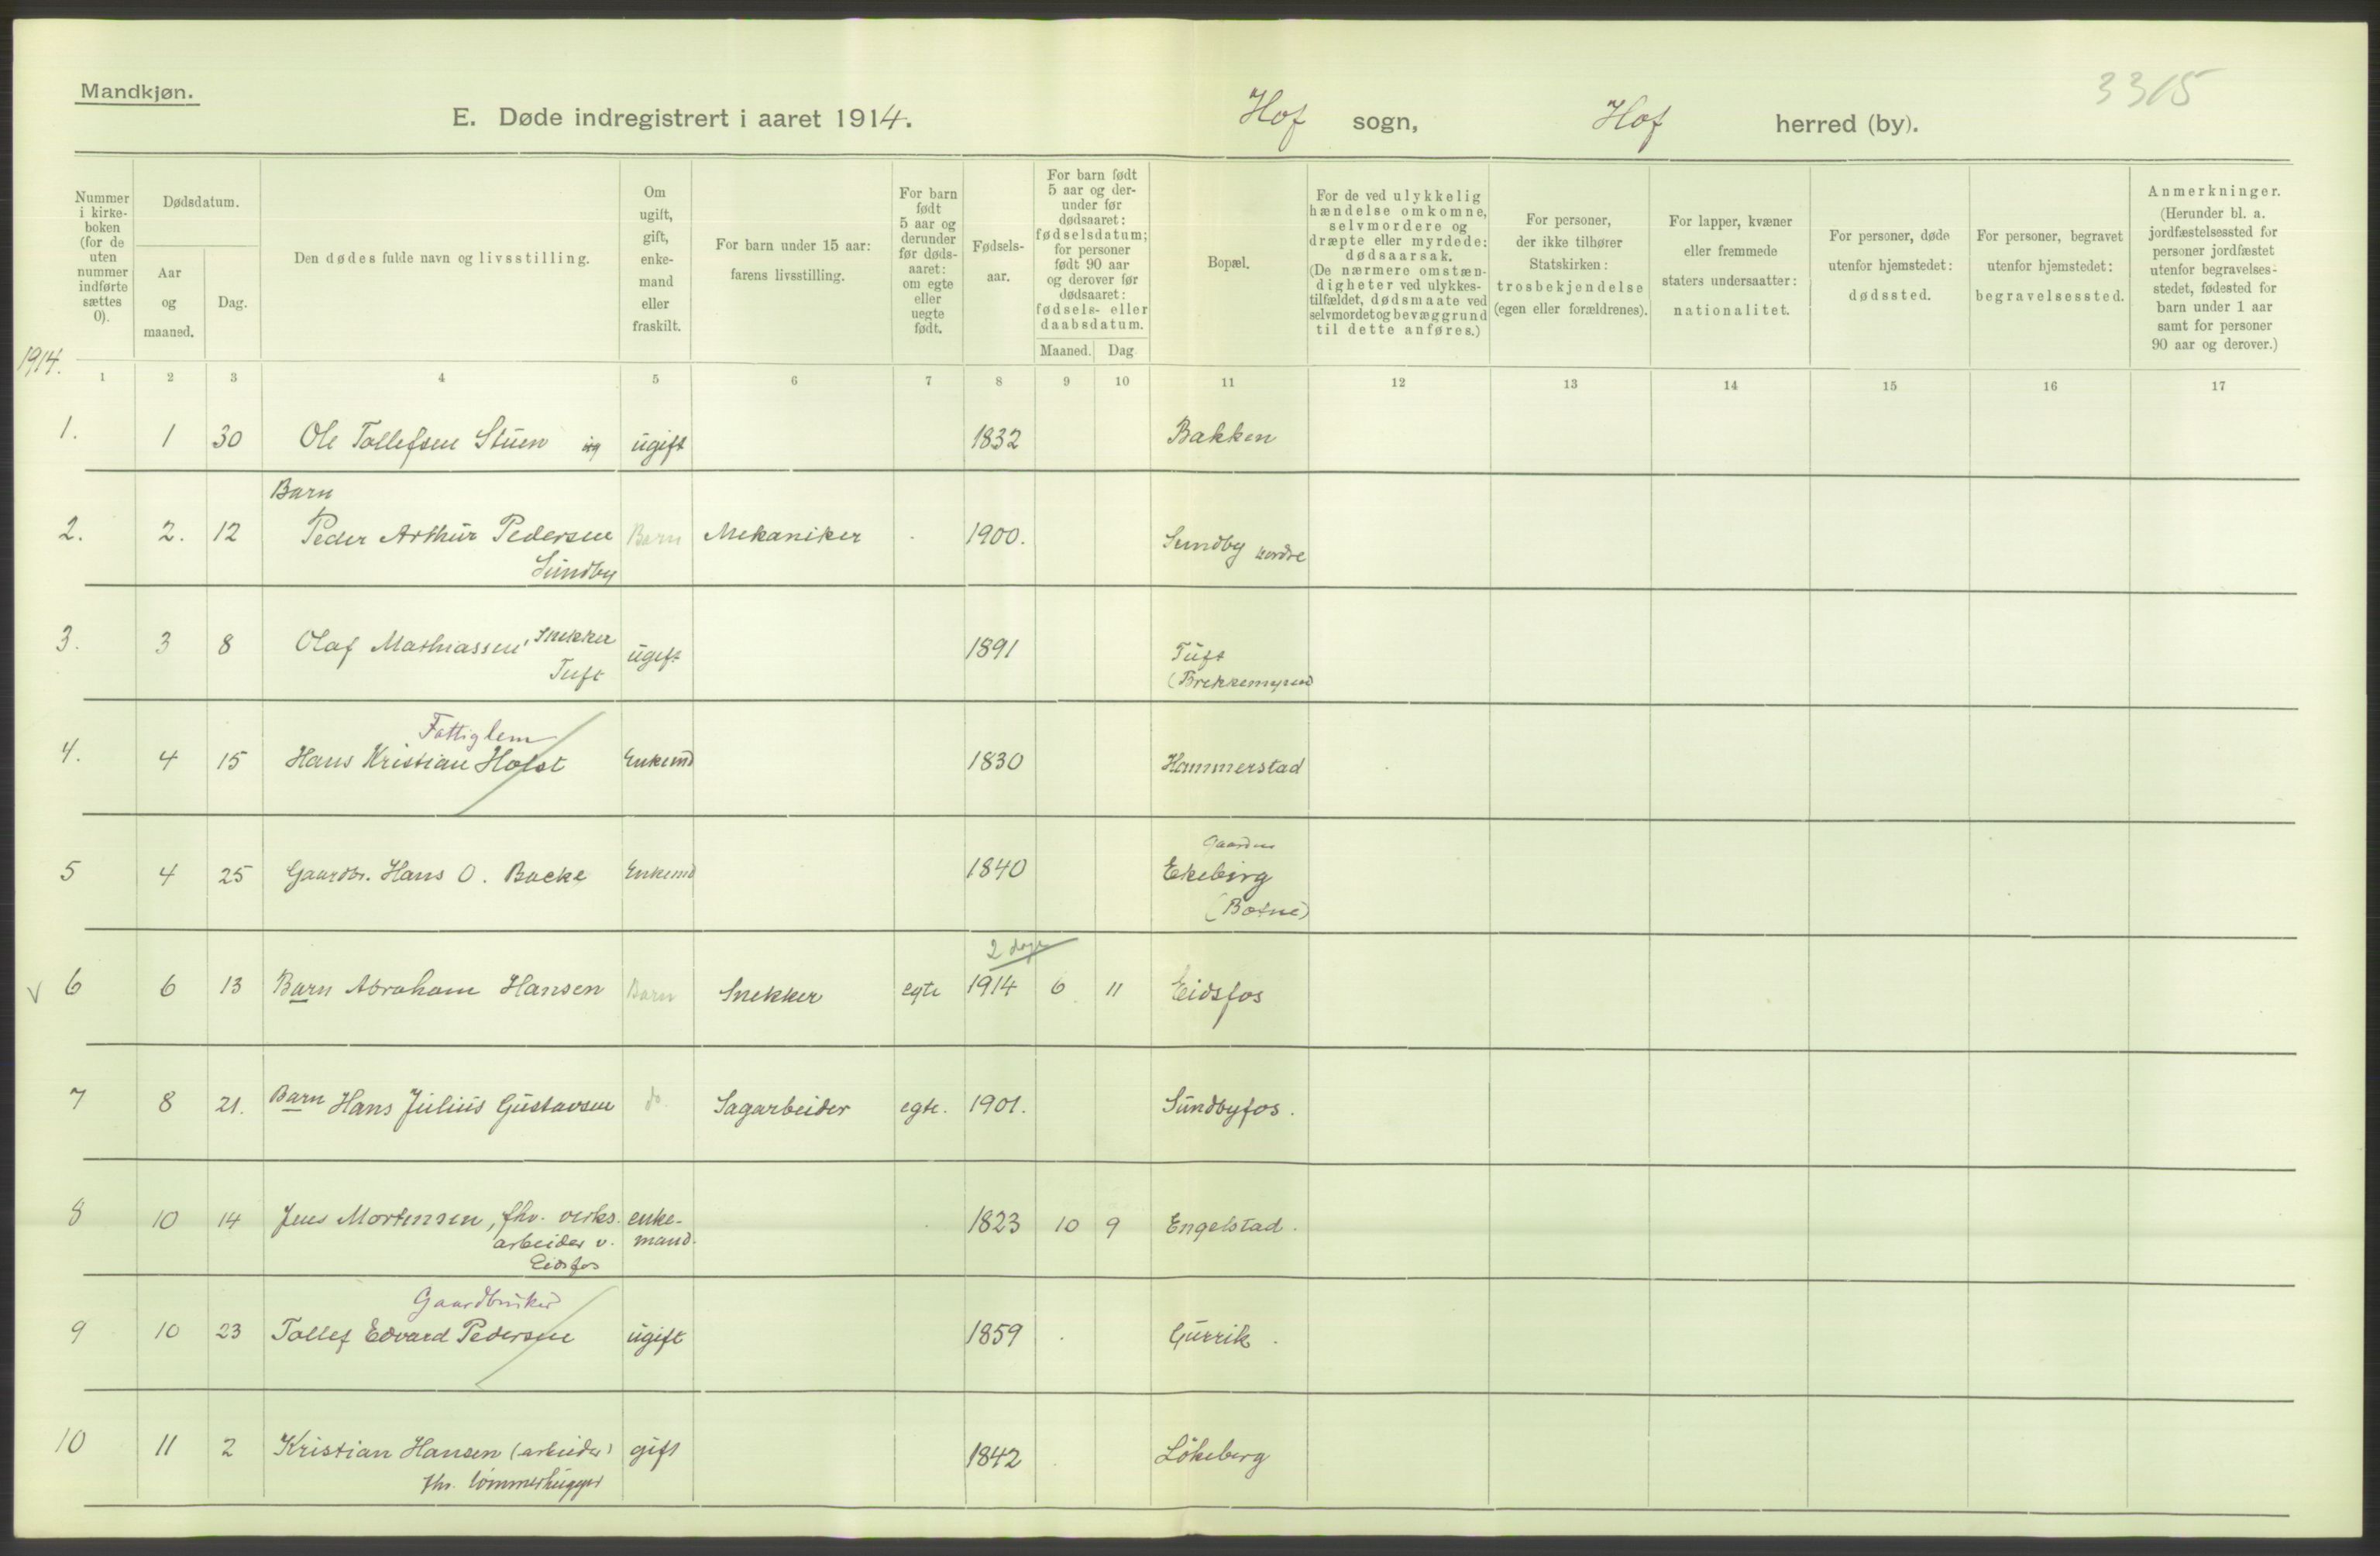 Mandkjøn.
E. Døde indregistrert i aaret 1914.
Hof sogn,
Hof herred (by).
3315
Nummer i kirke-boken (for de uten nummer indførte sættes 0).
Dødsdatum.
Aar og maaned.
Dag.
Den dødes fulde navn og livsstilling.
Om ugift, gift, enke-mand eller fraskilt.
For barn under 15 aar: farens livsstilling.
For barn født 5 aar og derunder før døds-aaret: om egte eller uegte født.
Fødsels-aar.
For barn født 5 aar og der-under før dødsaaret: fødselsdatum; for personer født 90 aar og derover før dødsaaret: fødsels- eller daabsdatum.
Maaned. Dag
Bopæl.
For de ved ulykkelig hændelse omkomne, selvmordere og dræpte eller myrdede: dødsaarsak. (De nærmere omstæn-digheter ved ulykkes-tilfældet, dødsmaate ved selvmordet og bevæggrund til dette anføres.)
For personer, der ikke tilhører Statskirken: trosbekjendelse (egen eller forældrenes).
For lapper, kvæner eller fremmede staters undersaatter: nationalitet.
For personer, døde utenfor hjemstedet: dødssted.
For personer, begravet utenfor hjemstedet: begravelsessted.
Anmerkninger. (Herunder bl. a. jordfæstelsessted for personer jordfæstet utenfor begravelses-stedet, fødested for barn under 1 aar samt for personer 90 aar og derover.)
1914.
1 2 3 4 5 6 7 8 9 10 11 12 13 14 15 16 17
1. 1 30 Ole Tollefsen Stuen ugift 1832 Bakken
Barn
2. 2. 12 Peder Arthur Pedersen Barn Mekaniker 1900. Sundby nordre
Sundby
3. 3 8 Olaf Mathiassen, Snekker ugift 1891 Tuft
Tuft (Brekkemyren)
Fattiglem
4. 4 15 Hans Kristian Holst Enkemd 1830 Hammerstad
Gaarden
5 4 25 Gaardbr. Hans O. Backe Enkemd 1840 Ekeberg
(Botne)
2 dage
6 6 13 Barn Abraham Hansen Barn Snekker egte 1914 6 11 Eidsfos
7 8 21. Barn Hans Julius Gustavsen do. Sagarbeider egte. 1901. Sundbyfos.
8 10 14 Jens Mortensen, fhv. verks. enke- 1823 10 9 Engelstad.
arbeider v. mand.
Eidsfos
Gaardbruker
9 10 23 Tollef Edvard Pedersen ugift 1859 Gurrik.
10 11 2 Kristian Hansen (arbeider) gift 1842 Lökeberg
fhv. tømmerhugger